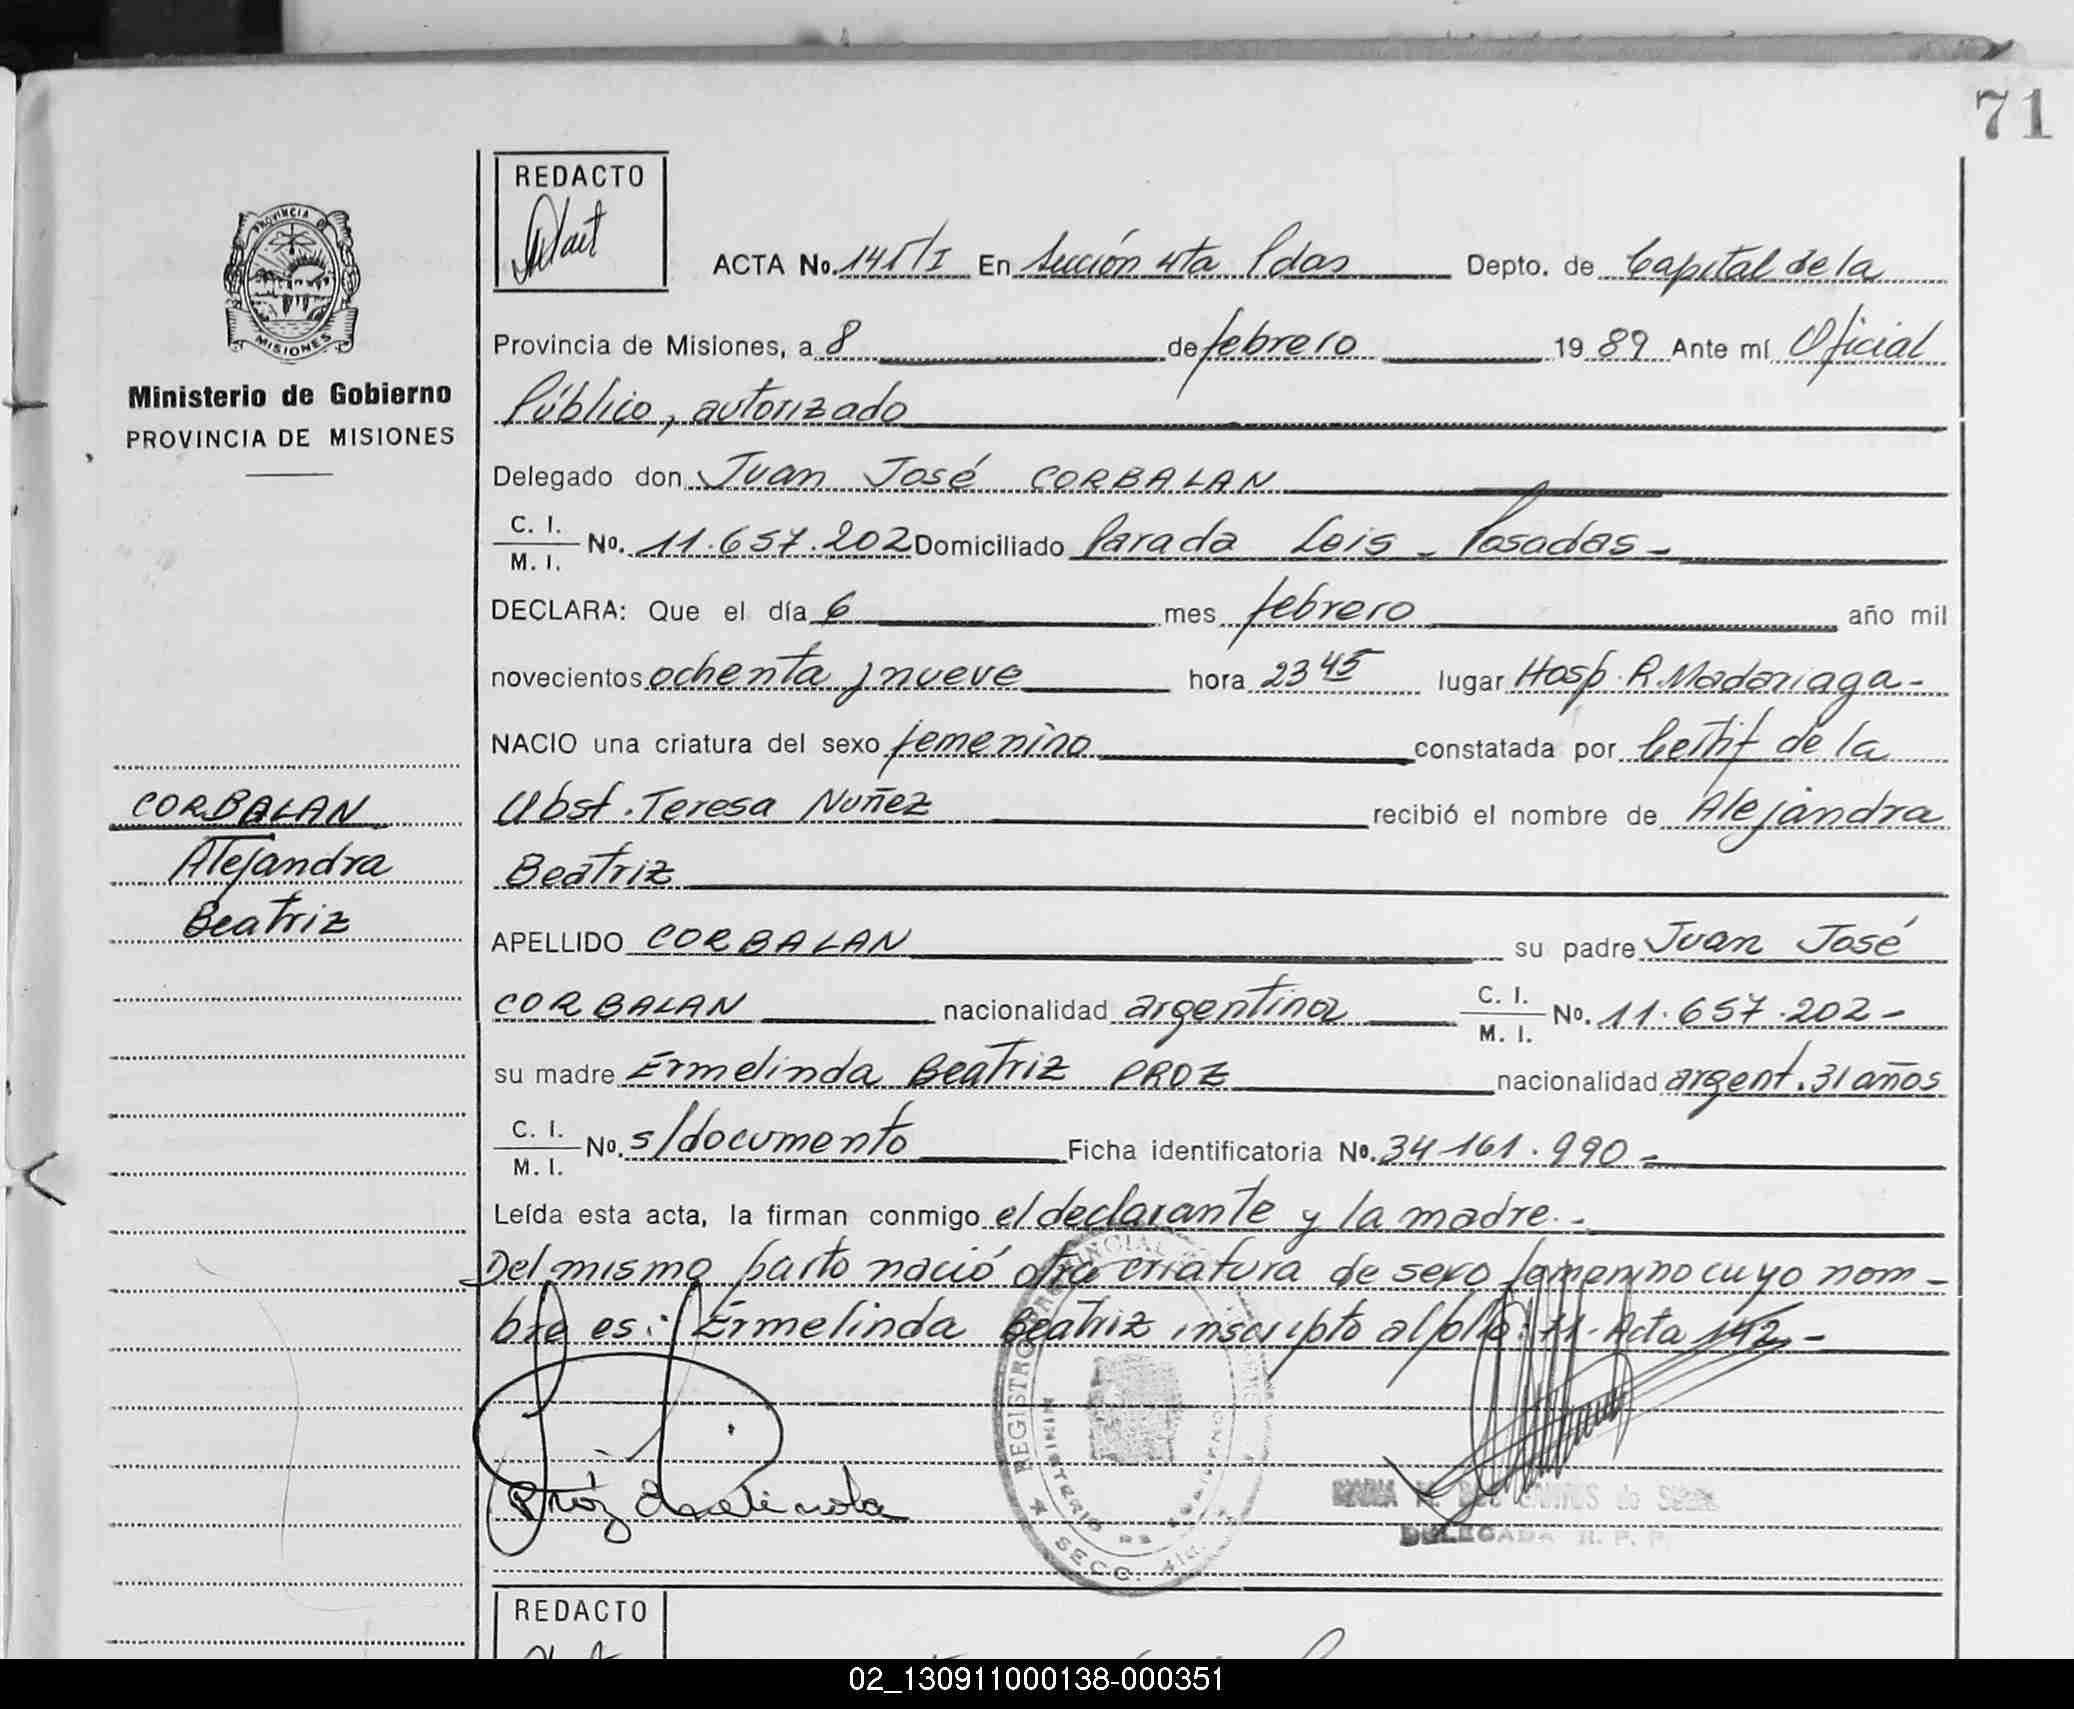 71
REDACTO
ACTA No. 141/I En Sección 4ta Pdas Depto. de Capital de la
PROVINCIA DE
MISIONES
Provincia de Misiones, a 8 de febrero 19 89 Ante mí Oficial
Ministerio de Gobierno
PROVINCIA DE MISIONES
Público, autorizado
Delegado don Juan José CORBALAN
C. I.
M. I. No. 11.657.202 Domiciliado Parada Leis - Posadas -
DECLARA: Que el día 6 mes febrero año mil
novecientos ochenta y nueve hora 23 45 lugar Hosp. R. Madariaga -
NACIO una criatura del sexo femenino constatada por Certif de la
CORBALAN
Alejandra
Beatriz
Obst. Teresa Nuñez recibió el nombre de Alejandra
Beatriz
APELLIDO CORBALAN su padre Juan José
CORBALAN nacionalidad argentina C. I.
M. I. No. 11.657.202 -
su madre Ermelinda Beatriz PROZ nacionalidad argent. 31 años
C. I.
M. I. No. s/documento Ficha identificatoria No. 34 161.990 -
Leída esta acta, la firman conmigo el declarante y la madre. -
Del mismo parto nació otra criatura de sexo femenino cuyo nom-
bre es: Ermelinda Beatriz inscripto al folio: 71 - Acta 142 -
REGISTRO PROVINCIAL
MINISTERIO DE GOBIERNO
SECC.
DELEGADA R. P. P.
REDACTO
02_130911000138-000351